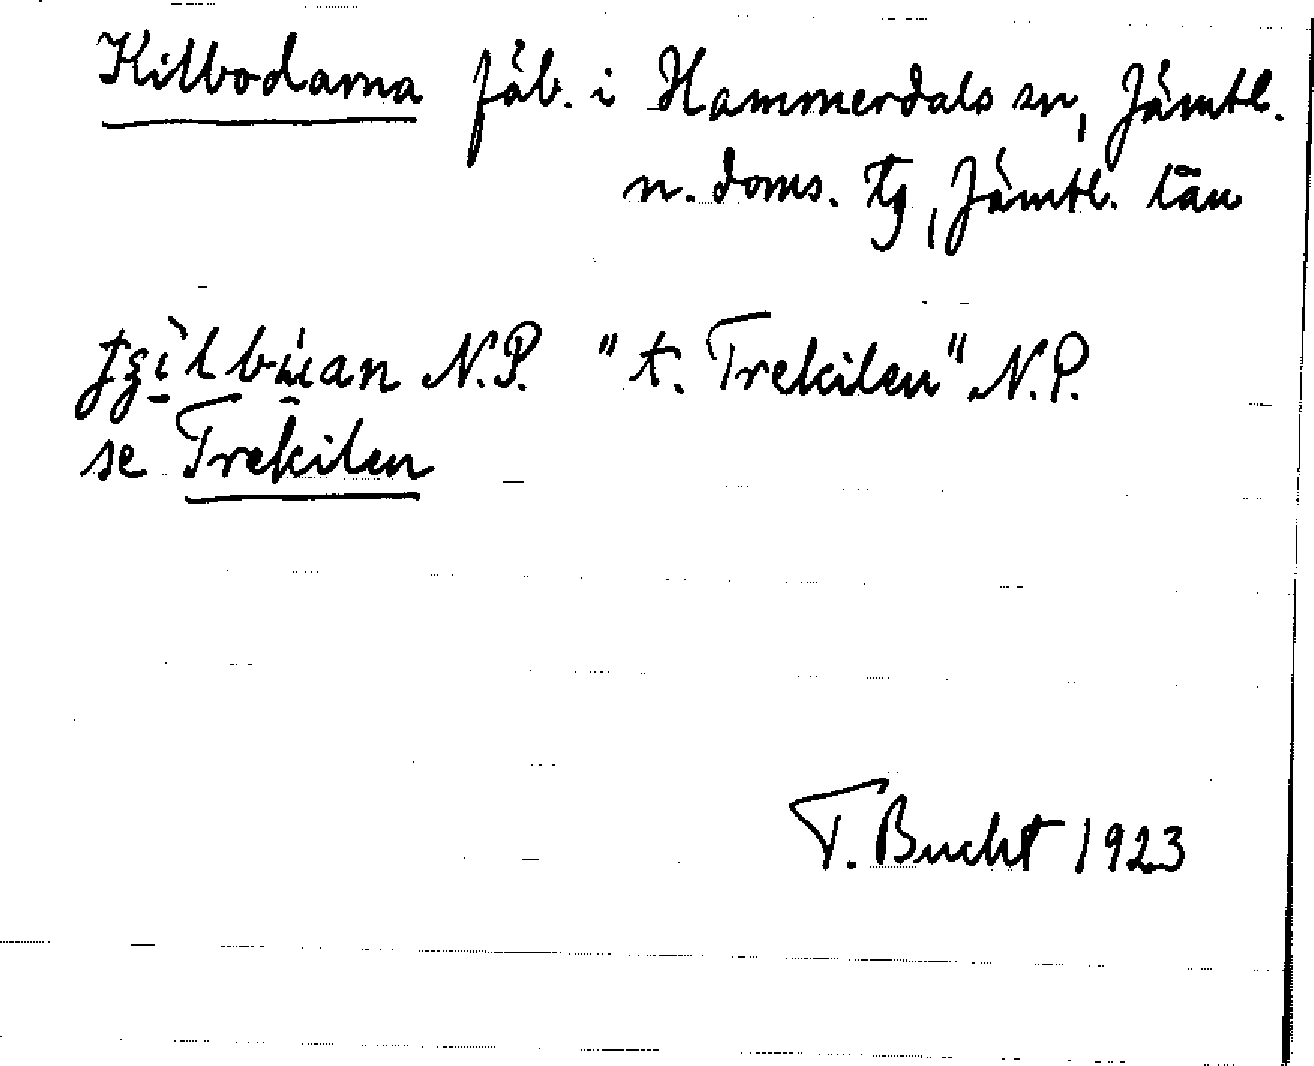 Kilbodarna fäb. i Hammerdals sn, Jämtl.
n. doms. Tg, Jämtl. län
N.P. "t. Trekilen" N.P.
se Trekilen
T. Bucht 1923